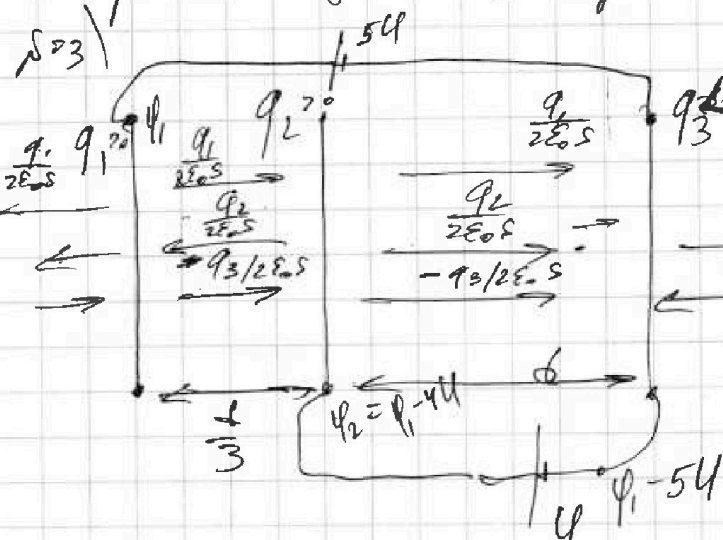 5U
q₁>0 φ₁
q₂>0
q₃<
q₁/2ε₀S
q₁/2ε₀S
q₁/2ε₀S
q₂/2ε₀S
q₂/2ε₀S
-q₃/2ε₀S
-q₃/2ε₀S
d/3
φ₂ = φ₁-4U
φ₁-5U
U